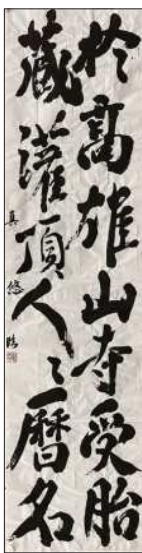 於高雄山寺受胎
藏灌頂人々曆名
真悠